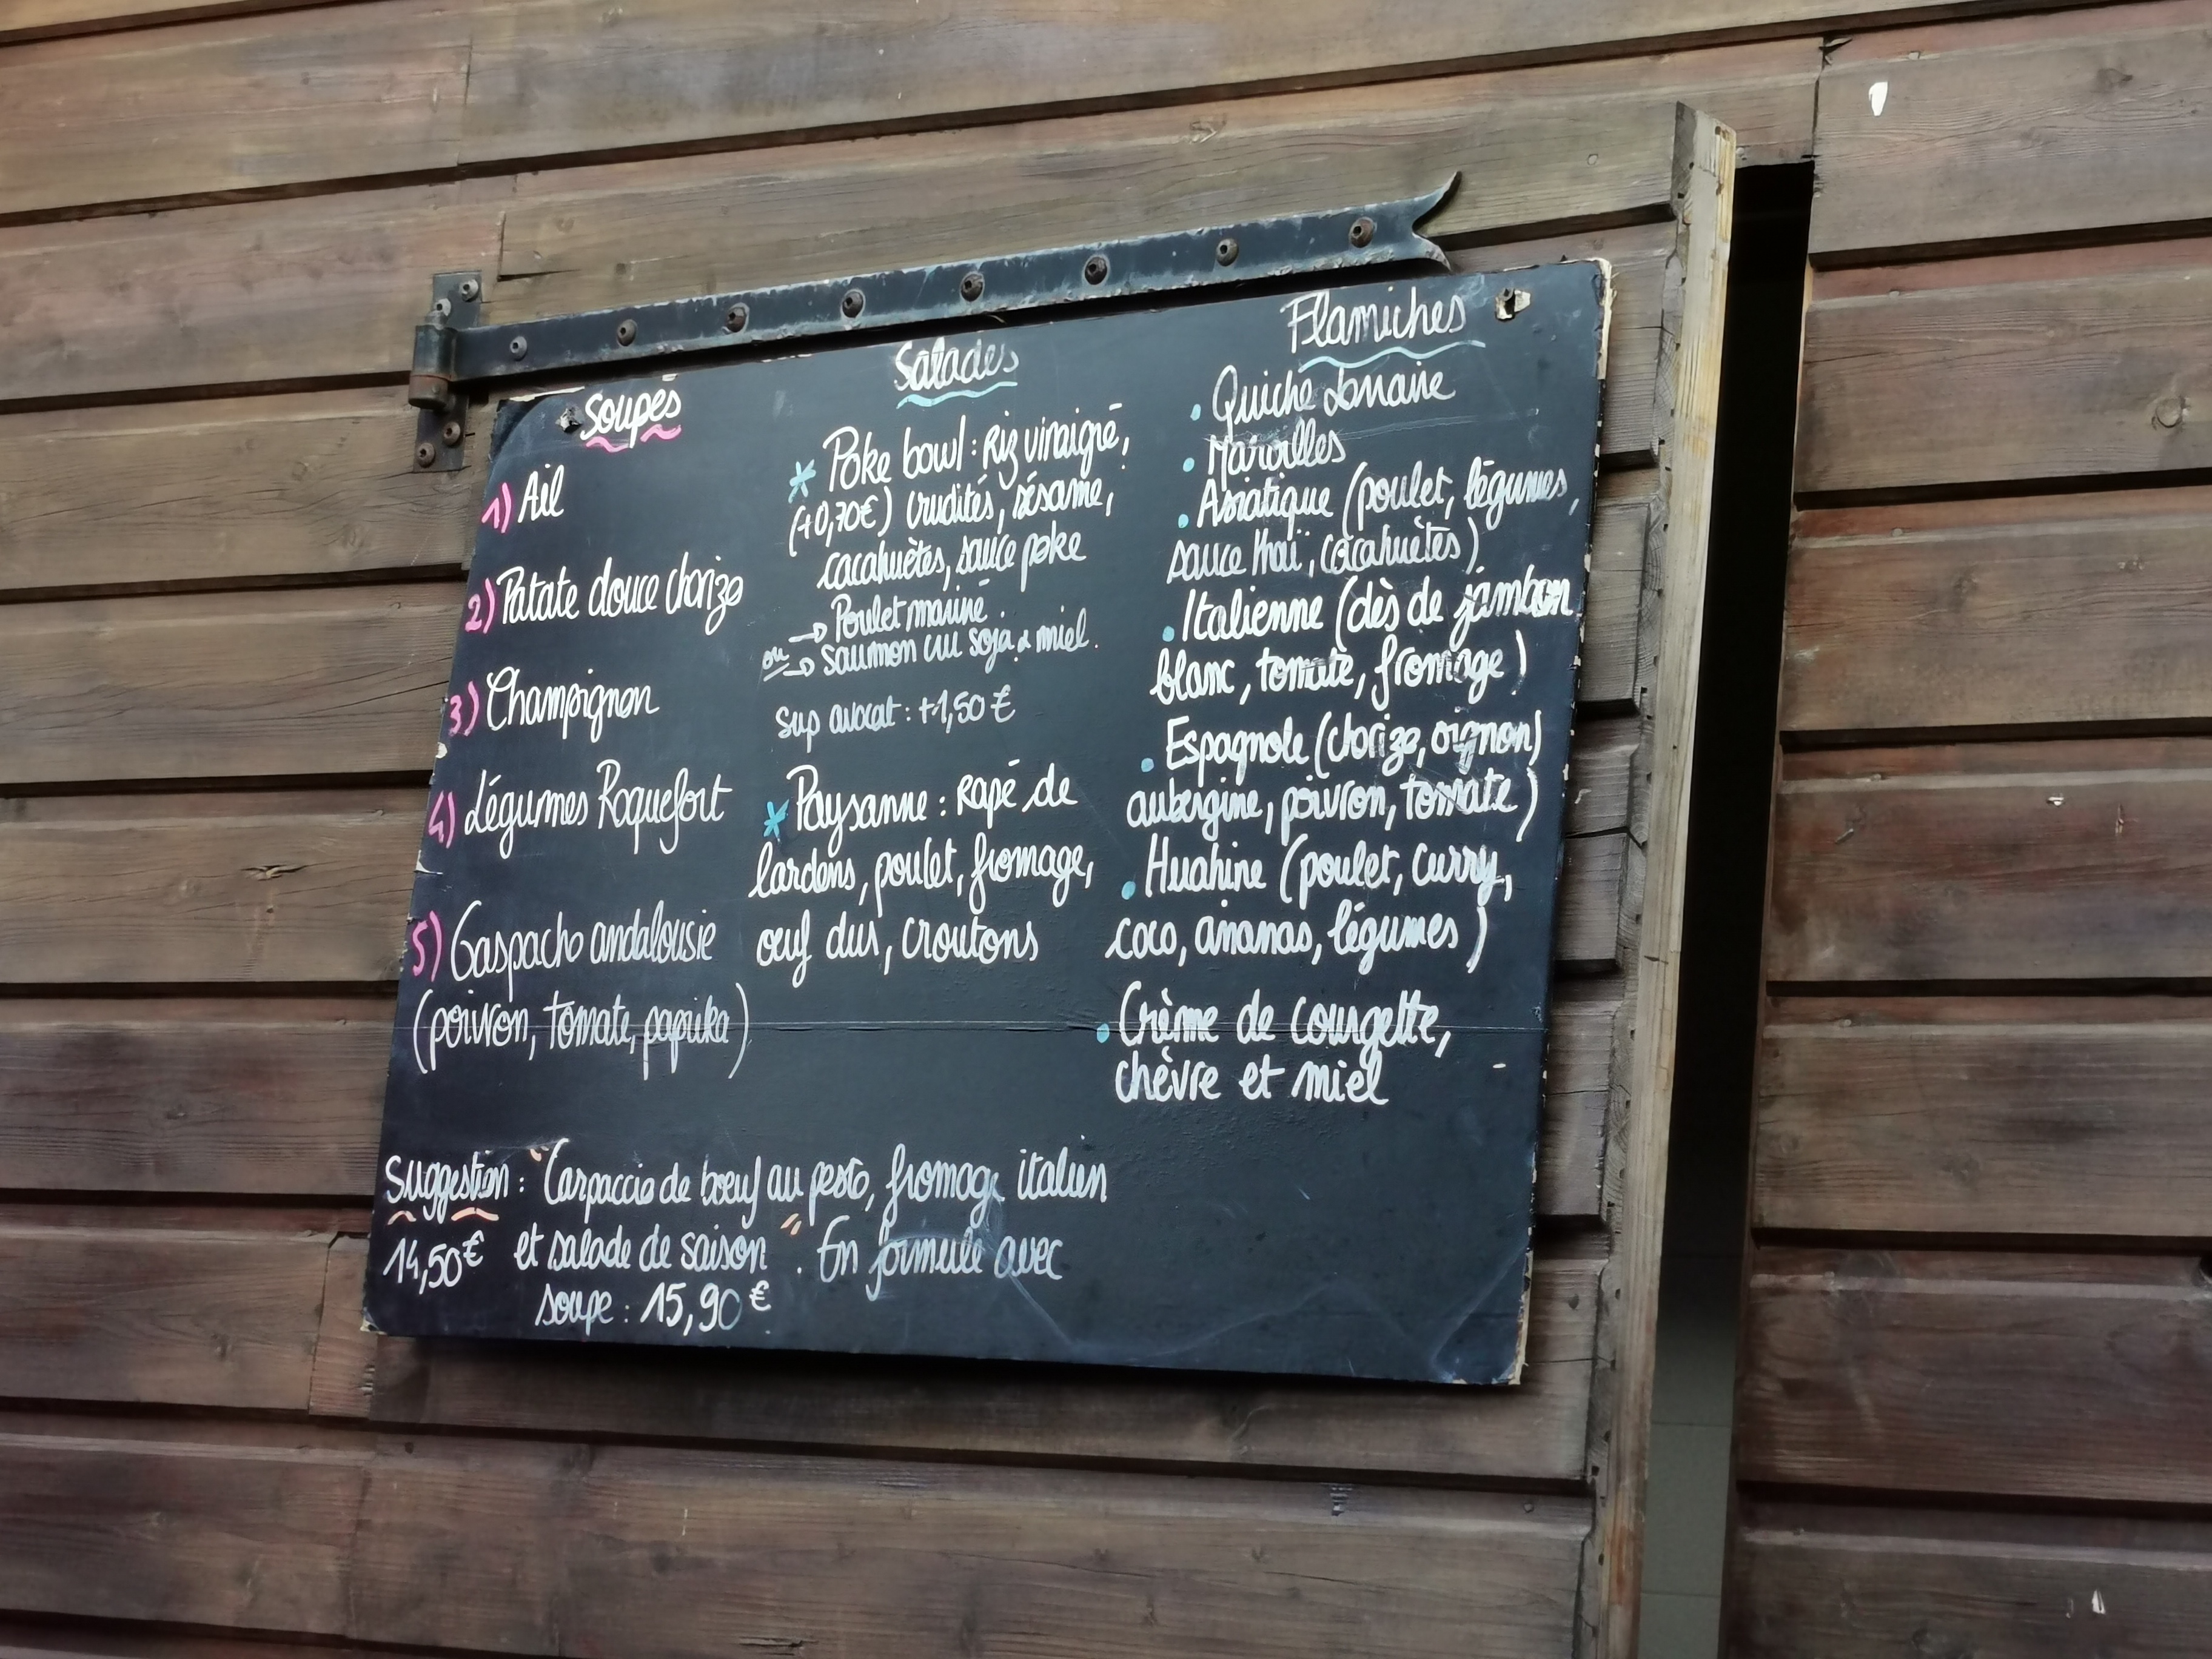 Soupes
1) Ail
2) Patate douce chorizo
3) Champignon
4) Légumes Roquefort
5) Gaspacho andalousie
(poivron, tomate, paprika)
Salades
* Poke bowl : Riz vinaigré,
(+0,70€) crudités, sésame,
cacahuètes, sauce poke
→ Poulet mariné.
ou → saumon cru soja & miel.
Sup avocat : +1,50 €
* Paysanne : Rapé de
lardons, poulet, fromage,
œuf dur, croutons
Flamiches
• Quiche Lorraine
• Maroilles
• Asiatique (poulet, légumes,
sauce thaï, cacahuètes)
• Italienne (dès de jambon
blanc, tomate, fromage)
• Espagnole (chorizo, oignon)
aubergine, poivron, tomate)
• Huahine (poulet, curry,
coco, ananas, légumes)
• Crème de courgette,
chèvre et miel
Suggestion : "Carpaccio de bœuf au pesto, fromage italien
14,50€ et salade de saison". En formule avec
soupe : 15,90€